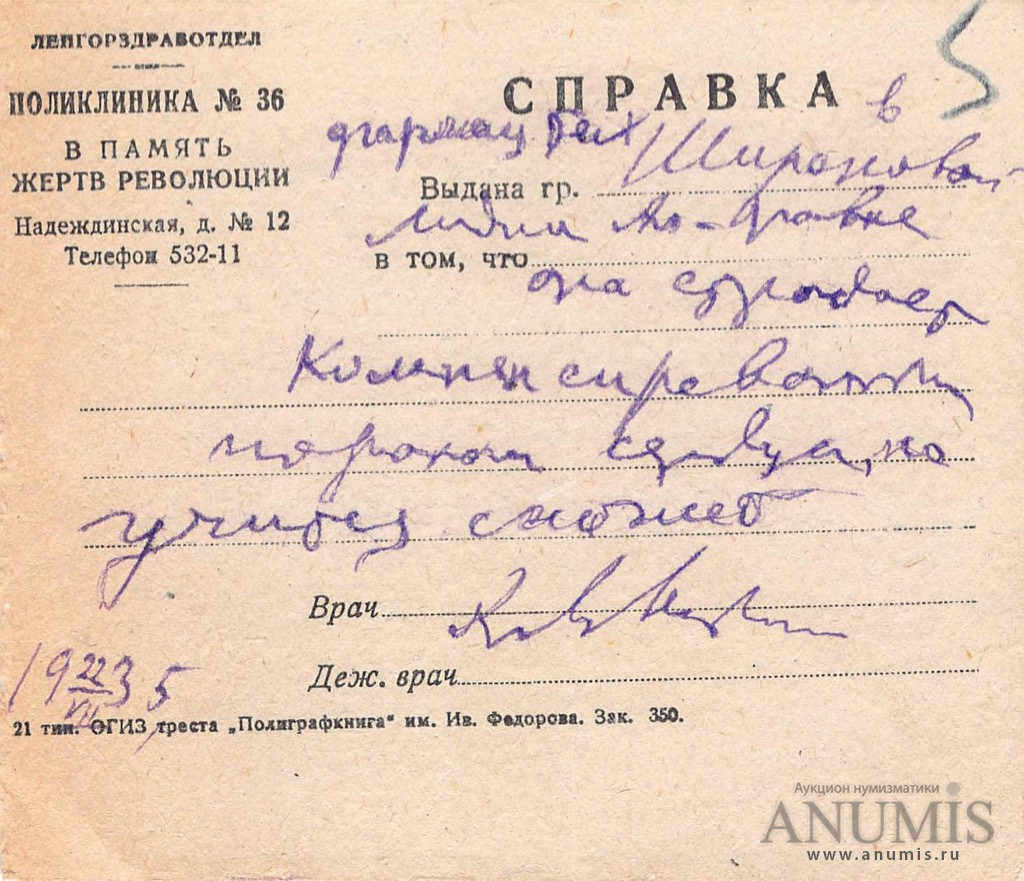 ЛЕНГОРЗДРАВОТДЕЛ
ПОЛИКЛИНИКА № 36
В ПАМЯТЬ
ЖЕРТВ РЕВОЛЮЦИИ
Надеждинская, д. № 12
Телефон 532-11
5
СПРАВКА
в
фармац. тех
Выдана гр. Широковой
Лидии
в том, что
она страдает
Компенсированным
пороком сердца, но
учиться сможет
Врач
Деж. врач
19 22/VII 35
21 тип. ОГИЗ треста „Полиграфкнига“ им. Ив. Федорова. Зак. 350.
Аукцион нумизматики
ANUMIS
www.anumis.ru